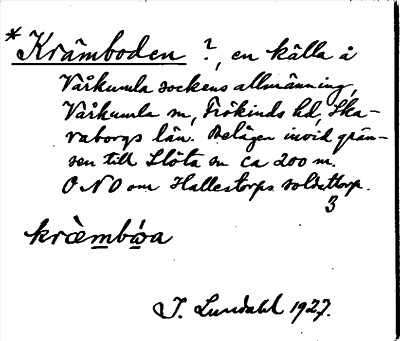 *Krämboden ?, en källa å
Vårkumla sockens allmänning,
Vårkumla sn, Frökinds hd, Ska-
raborgs län. Belägen invid grän-
sen till Slöta sn ca 200 m.
ONO om Hallestorps soldattorp.
3
krämbåa
J. Lundahl 1927.